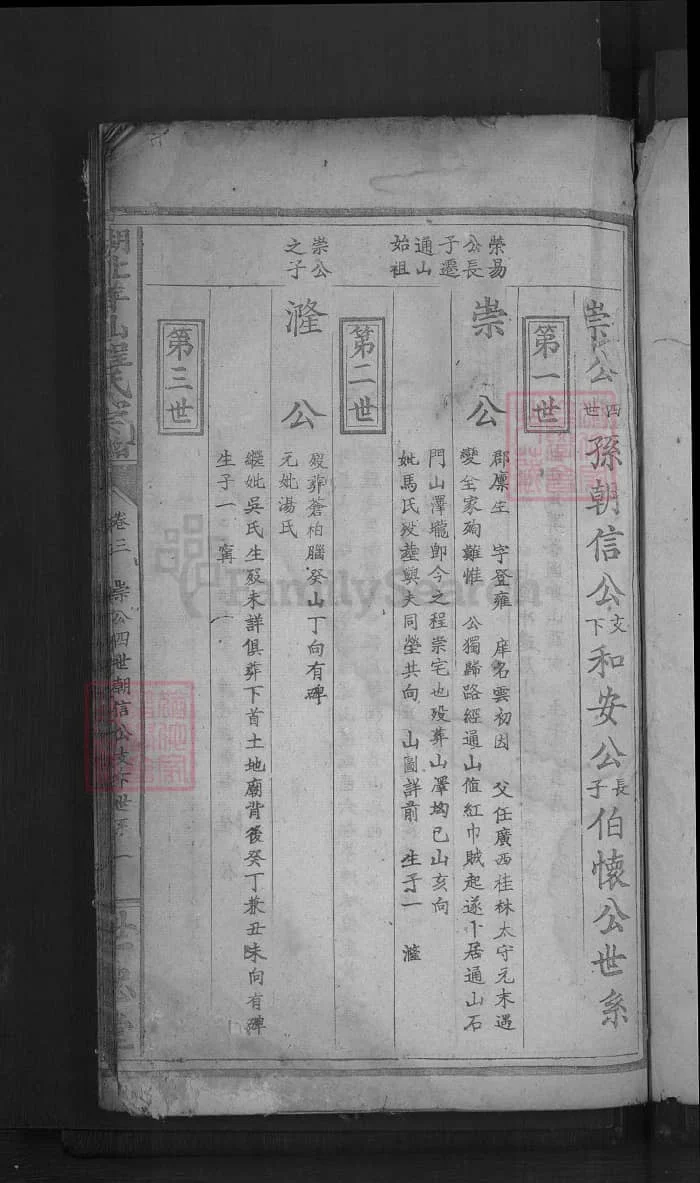 崇公四世孫朝信公支下和安公長子伯懷公世系
第一世
榮易
公長
子遷
通山
始祖
崇公
郡廩生 字登雍 庠名雲初因 父任廣西桂林太守元末遇
變全家殉難惟 公獨歸路經通山值紅巾賊起遂卜居通山石
門山澤壠郎今之程崇宅也歿葬山澤坳巳山亥向
妣馬氏歿塟與夫同塋共向 山圖詳前 生子一 滏
第二世
崇公
之子
公
歿葬蒼柏腦癸山丁向有碑
元妣湯氏
繼妣吳氏生歿未詳俱葬下首土地廟背後癸丁兼丑未向有碑
生子一 寗
第三世
卷三 崇公四世朝信公支下世系 一
FamilySearch